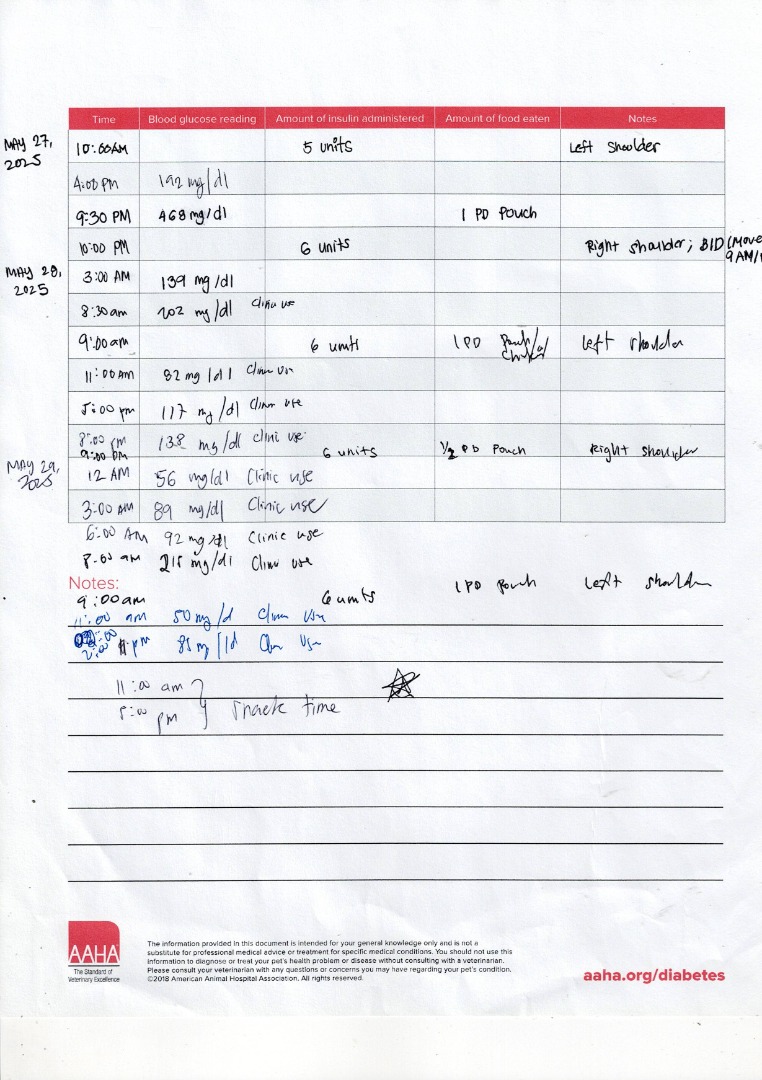 Time Blood glucose reading Amount of insulin administered Amount of food eaten Notes
MAY 27, 2025 10:00AM 5 units Left Shoulder
4:00 PM 192 mg/dl
9:30 PM 468 mg/dl 1 PD Pouch
10:00 PM 6 units Right shoulder; BID (Move 9AM/
MAY 28, 2025 3:00 AM 139 mg/dl
8:30am 202 mg/dl Clinic use
9:00am 6 units 1 PD Pouch/ Left shoulder
11:00AM 82 mg/dl Clinic use
5:00 pm 117 mg/dl Clinic use
8:00 pm 138 mg/dl clinic use
9:00 PM 6 units 1/2 PD Pouch Right shoulder
MAY 29, 2025 12 AM 56 mg/dl Clinic use
3:00 AM 89 mg/dl Clinic use
6:00 AM 92 mg/dl Clinic use
8:00 am 215 mg/dl Clinic use
Notes:
9:00am 6 units 1 PD Pouch Left shoulder
11:00 am 50 mg/d Clinic use
2:00 pm 85 mg/dl Clinic use
11:00 am
5:00 pm } Snack time
AAHA
The Standard of
Veterinary Excellence
The information provided in this document is intended for your general knowledge only and is not a
substitute for professional medical advice or treatment for specific medical conditions. You should not use this
information to diagnose or treat your pet's health problem or disease without consulting with a veterinarian.
Please consult your veterinarian with any questions or concerns you may have regarding your pet's condition.
©2018 American Animal Hospital Association. All rights reserved.
aaha.org/diabetes